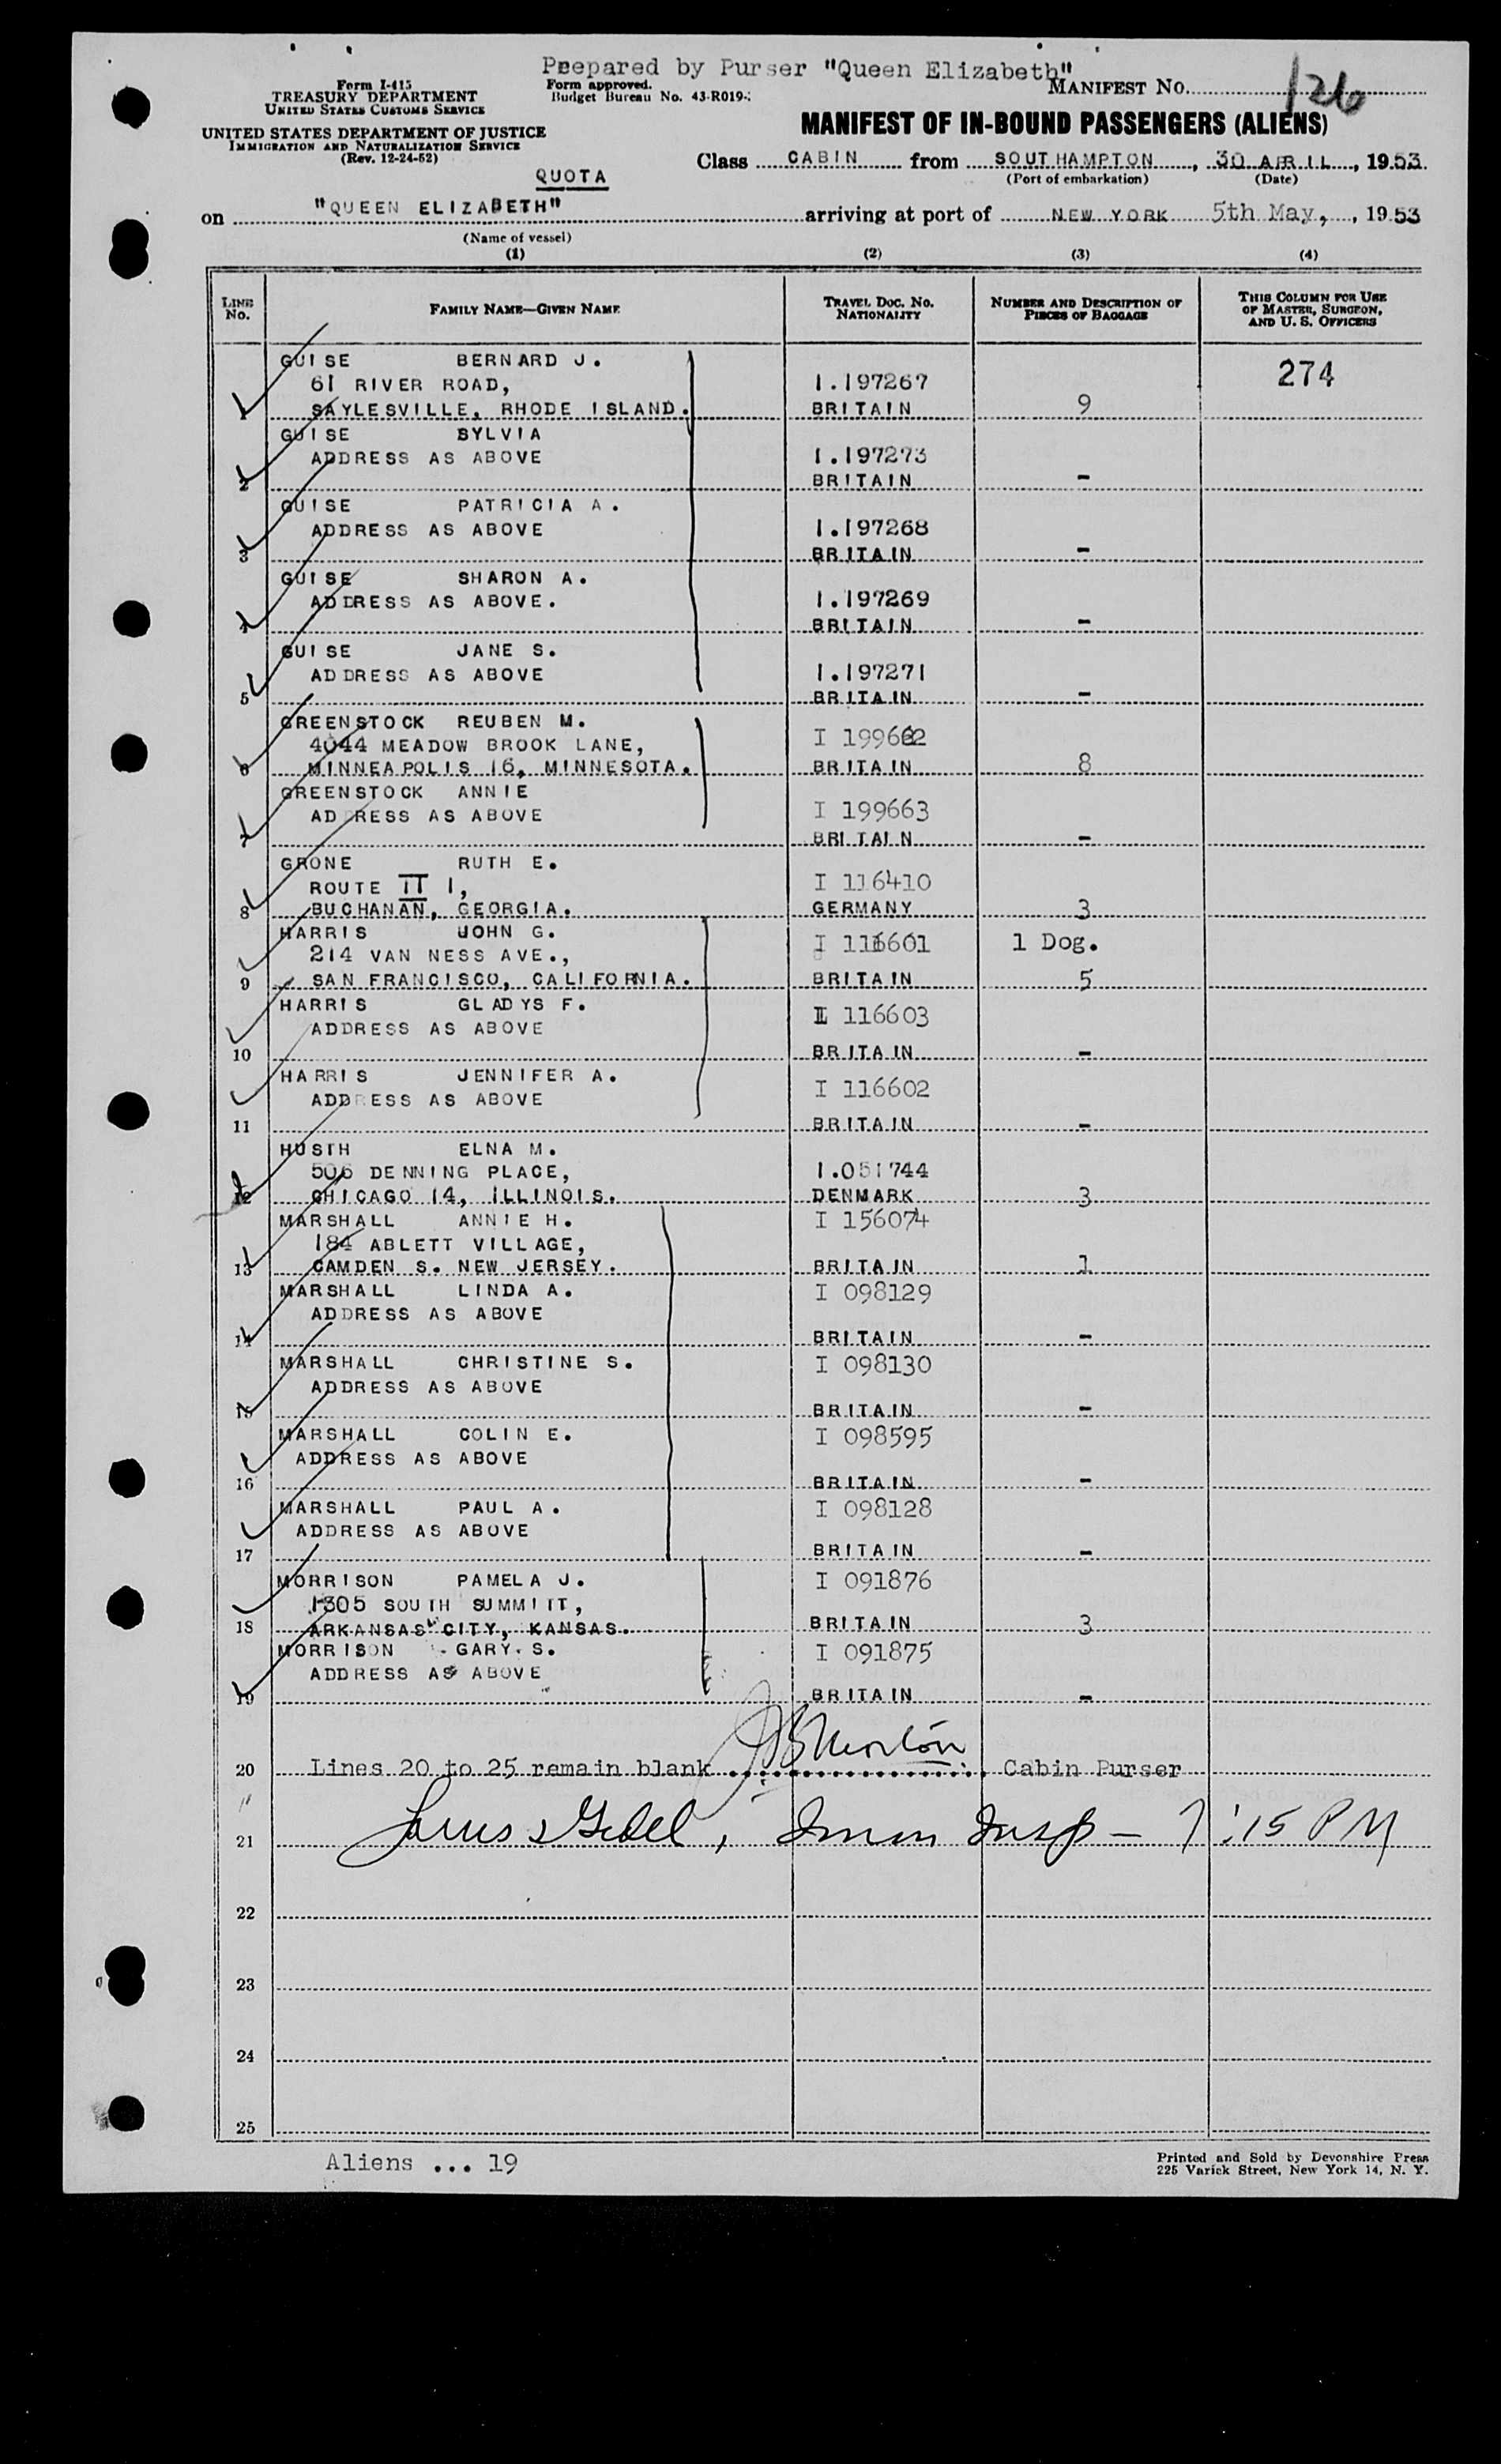 Prepared by Purser "Queen Elizabeth"
Form I-415
TREASURY DEPARTMENT
UNITED STATES CUSTOMS SERVICE
UNITED STATES DEPARTMENT OF JUSTICE
IMMIGRATION AND NATURALIZATION SERVICE
(Rev. 12-24-52)
Form approved.
Budget Bureau No. 43-R019-
MANIFEST NO. 126
MANIFEST OF IN-BOUND PASSENGERS (ALIENS)
Class CABIN from SOUTHAMPTON, 30 APRIL, 1953.
(Port of embarkation) (Date)
QUOTA
on "QUEEN ELIZABETH" arriving at port of NEW YORK 5th May, , 1953
(Name of vessel)
(1) (2) (3) (4)
LINE NO. FAMILY NAME—GIVEN NAME TRAVEL DOC. NO. NATIONALITY NUMBER AND DESCRIPTION OF PIECES OF BAGGAGE THIS COLUMN FOR USE OF MASTER, SURGEON, AND U. S. OFFICERS
GUISE BERNARD J. 274
61 RIVER ROAD, 1.197267
1 SAYLESVILLE, RHODE ISLAND. BRITAIN 9
GUISE SYLVIA
ADDRESS AS ABOVE 1.197273
2 BRITAIN -
GUISE PATRICIA A.
ADDRESS AS ABOVE 1.197268
3 BRITAIN -
GUISE SHARON A.
ADDRESS AS ABOVE. 1.197269
4 BRITAIN -
GUISE JANE S.
ADDRESS AS ABOVE 1.197271
5 BRITAIN -
GREENSTOCK REUBEN M.
4044 MEADOW BROOK LANE, I 199662
6 MINNEAPOLIS 16, MINNESOTA. BRITAIN 8
GREENSTOCK ANNIE
AD RESS AS ABOVE I 199663
7 BRITAIN -
GRONE RUTH E.
ROUTE II 1, I 116410
8 BUCHANAN, GEORGIA. GERMANY 3
HARRIS JOHN G. I 116601 1 Dog.
214 VAN NESS AVE.,
9 SAN FRANCISCO, CALIFORNIA. BRITAIN 5
HARRIS GLADYS F. I 116603
ADDRESS AS ABOVE
10 BRITAIN -
HARRIS JENNIFER A. I 116602
ADDRESS AS ABOVE
11 BRITAIN -
HUSTH ELNA M.
506 DENNING PLACE, 1.051744
12 CHICAGO 14, ILLINOIS. DENMARK 3
MARSHALL ANNIE H. I 156074
184 ABLETT VILLAGE,
13 CAMDEN S. NEW JERSEY. BRITAIN 1
MARSHALL LINDA A. I 098129
ADDRESS AS ABOVE
14 BRITAIN -
MARSHALL CHRISTINE S. I 098130
ADDRESS AS ABOVE
15 BRITAIN -
MARSHALL COLIN E. I 098595
ADDRESS AS ABOVE
16 BRITAIN -
MARSHALL PAUL A. I 098128
ADDRESS AS ABOVE
17 BRITAIN -
MORRISON PAMELA J. I 091876
1305 SOUTH SUMMIT,
18 ARKANSAS CITY, KANSAS. BRITAIN 3
MORRISON GARY. S. I 091875
ADDRESS AS ABOVE
19 BRITAIN -
20 Lines 20 to 25 remain blank Cabin Purser
21 Immn Insp - 7:15 PM
22
23
24
25
Aliens ... 19
Printed and Sold by Devonshire Press
225 Varick Street, New York 14, N. Y.